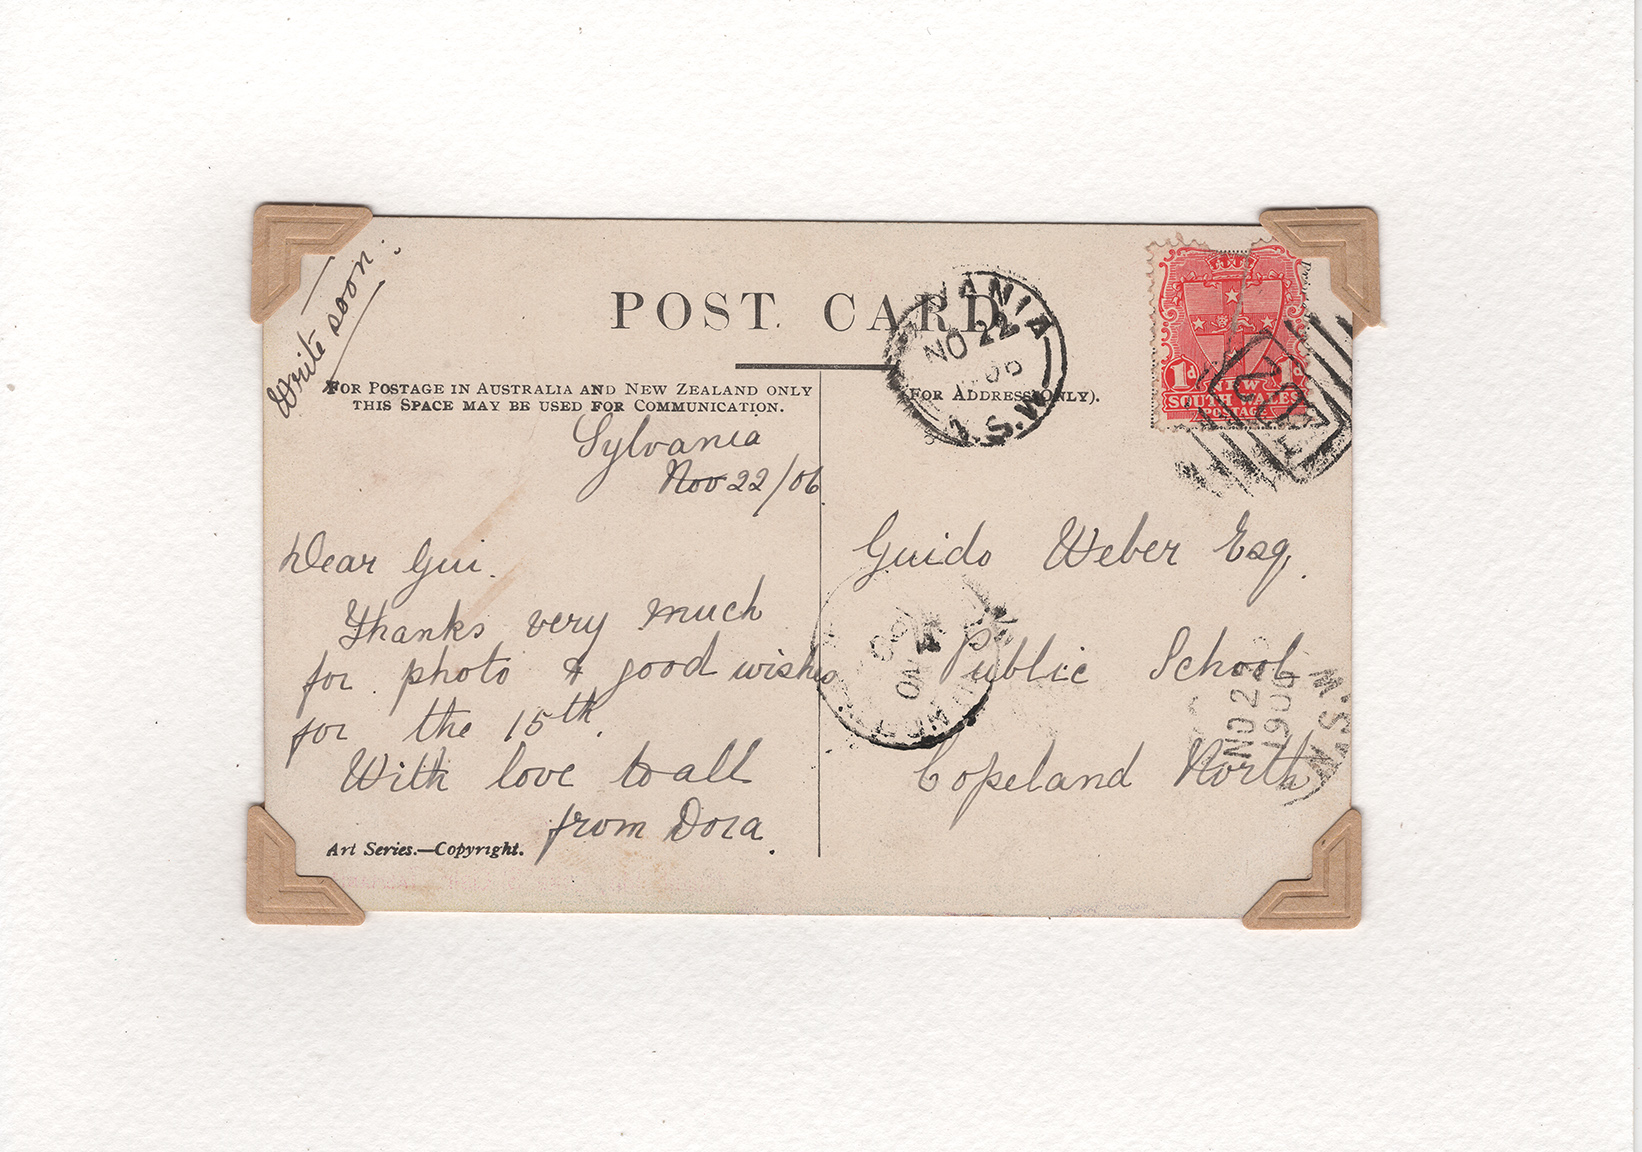 Write soon.
POST CARD
FOR POSTAGE IN AUSTRALIA AND NEW ZEALAND ONLY
THIS SPACE MAY BE USED FOR COMMUNICATION.
(FOR ADDRESS ONLY).
Sylvania
Nov 22/06
Dear Gui.
Thanks very much
for photo & good wishes
for the 15th.
With love to all
from Dora.
Art Series.—Copyright.
VANIA
NO 22
06
N.S.W
1d 1d
NEW
SOUTH WALES
POSTAGE
Guido Weber Esq.
Public School
Copeland North
NO 2
1906
N.S.W